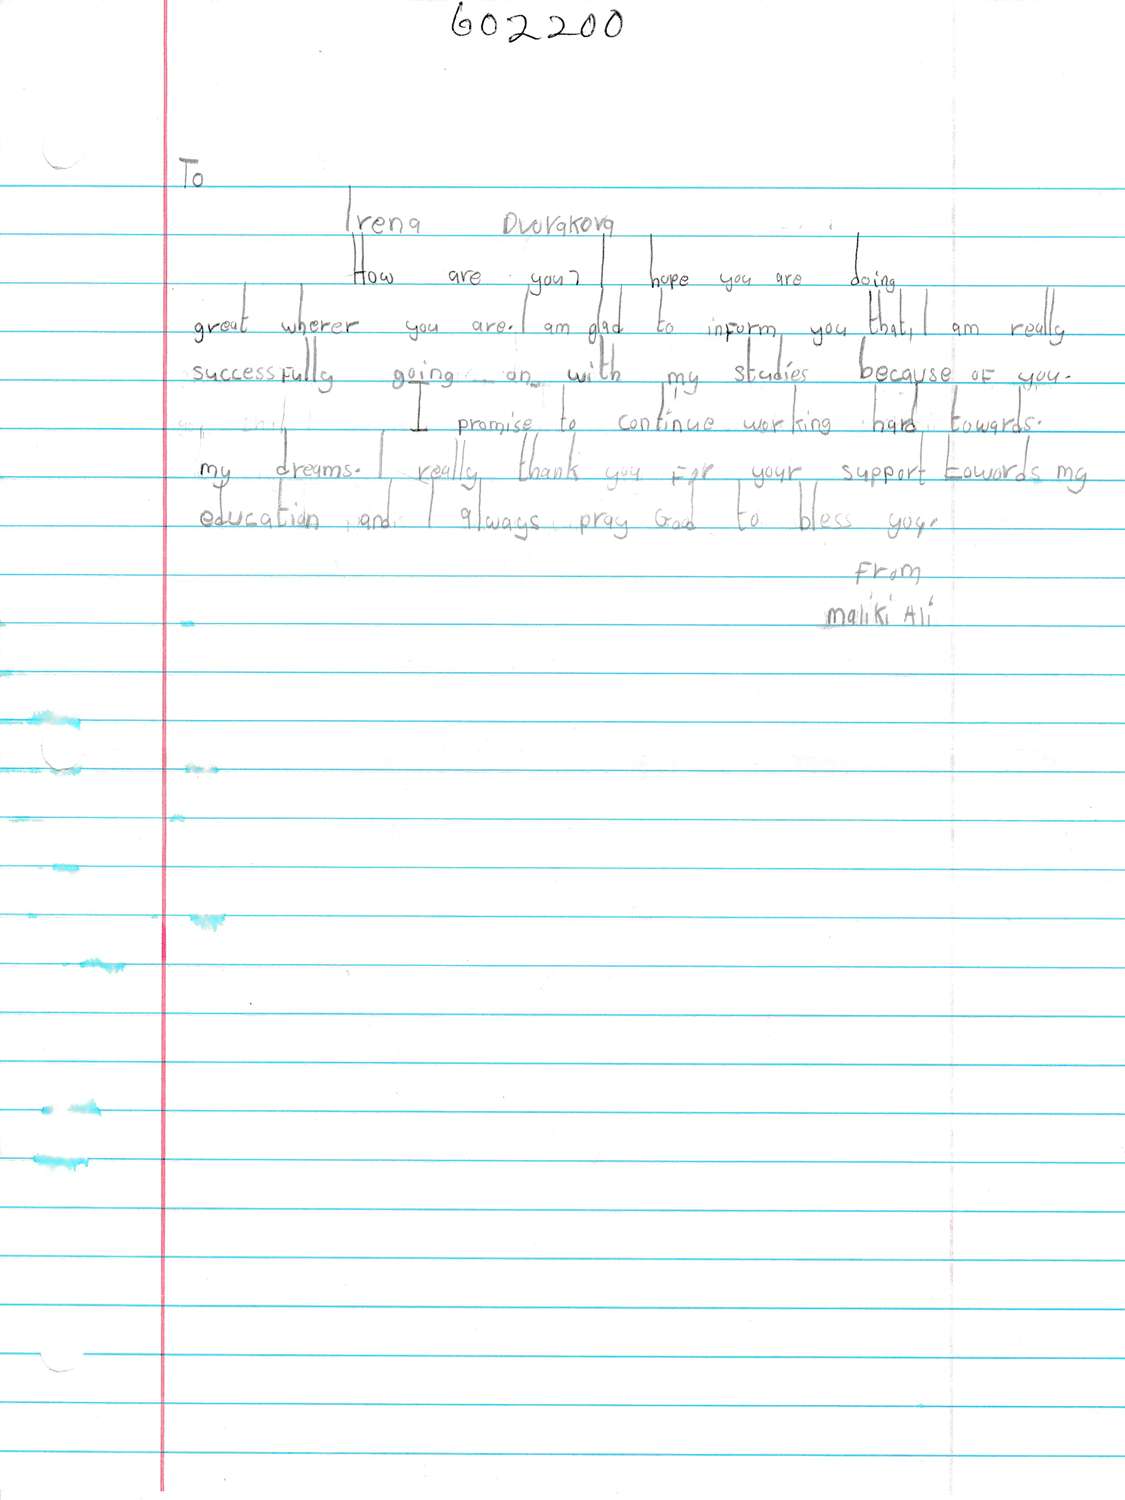 602200
To
Irena Dvorakova
How are you? I hope you are doing
great wherer you are. I am glad to inform you that, I am really
successfully going on with my studies because of you.
I promise to continue working hard towards.
my dreams. I really thank you for your support towards my
education and I always pray God to bless you.
From
maliki Ali